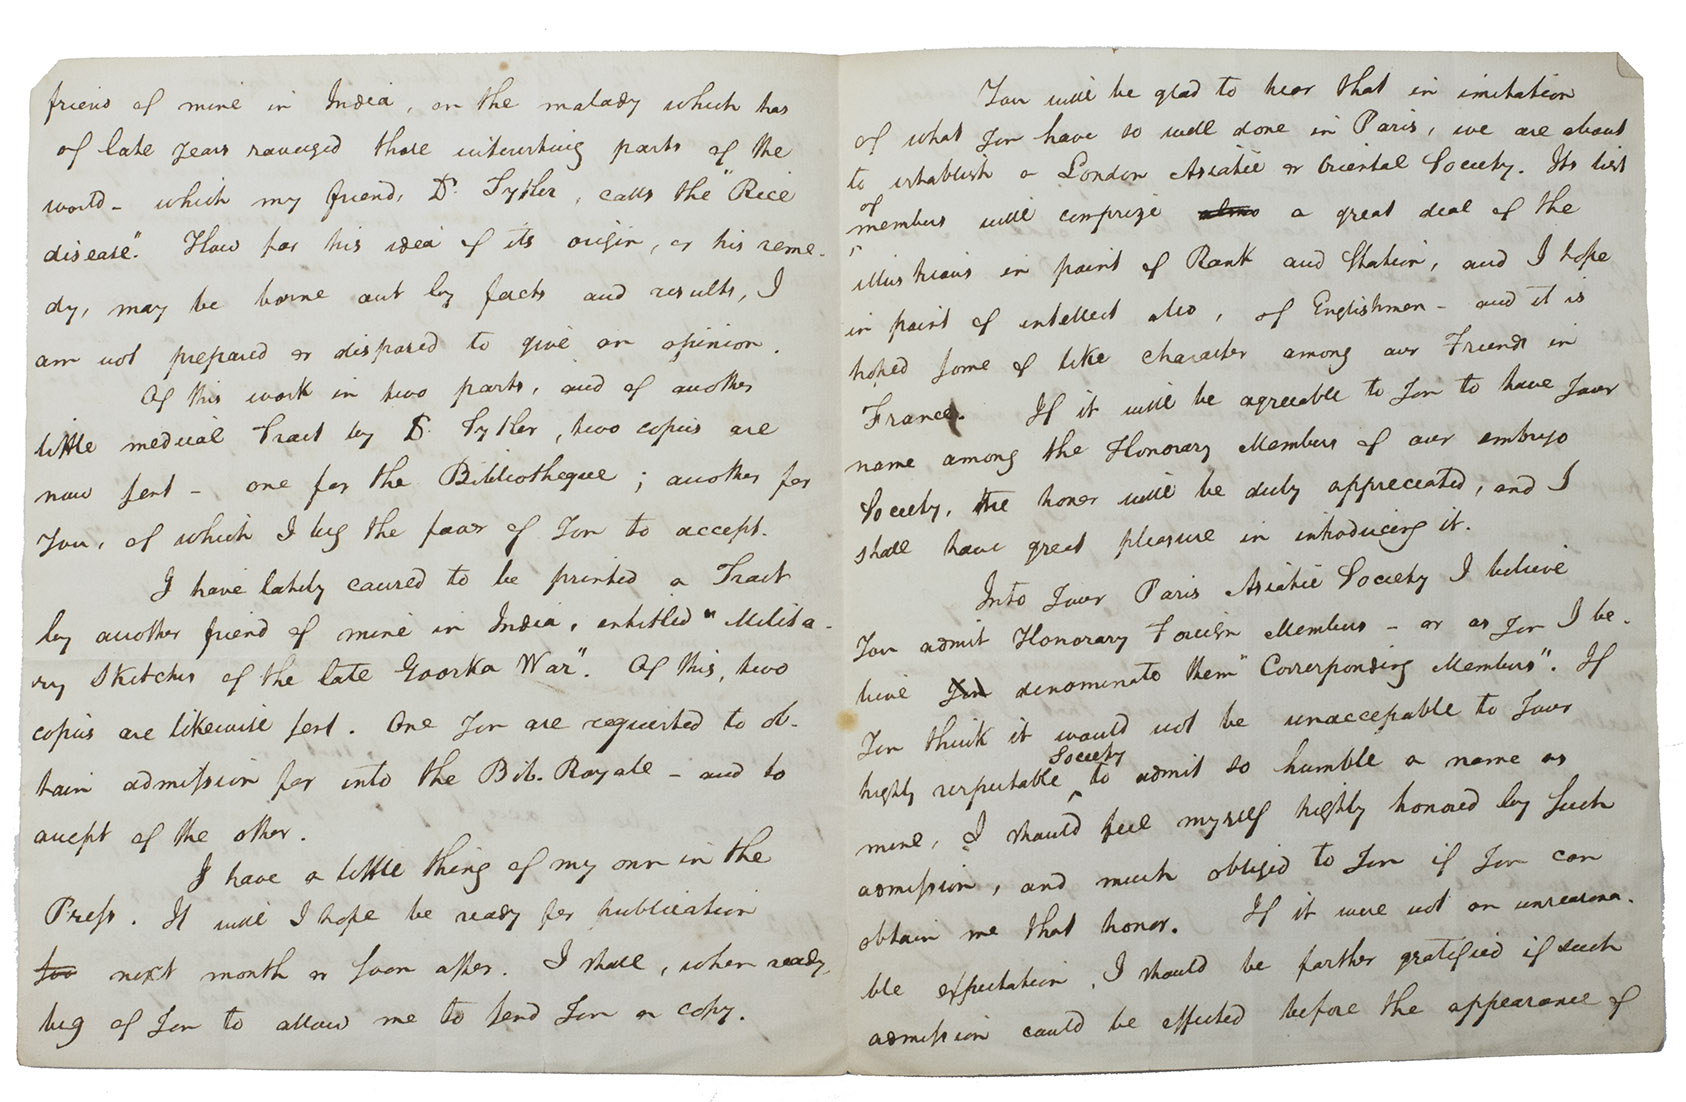 friend of mine in India, on the malady which has
of late years ravaged those interesting parts of the
world – which my friend, Dr. Tytler, calls the "Rice
disease". How far his idea of its origin, or his reme-
dy, may be borne out by facts and results, I
am not prepared or disposed to give an opinion.
Of this work in two parts, and of another
little medical Tract by Dr. Tytler, two copies are
now sent – one for the Bibliotheque; another for
You, of which I beg the favor of You to accept.
I have lately caused to be printed a Tract
by another friend of mine in India, entitled "Milita-
ry Sketches of the late Goorka War". Of this, two
copies are likewise sent. One You are requested to ob-
tain admission for into the Bib. Royale – and to
accept of the other.
I have a little thing of my own in the
Press. It will I hope be ready for publication
too next month or soon after. I shall, when ready,
beg of You to allow me to send You a copy.
You will be glad to hear that in imitation
of what You have so well done in Paris, we are about
to establish a London Asiatic or Oriental Society. Its list
of
members will comprize also a great deal of the
illustrious in point of Rank and Station, and I hope
in point of intellect also, of Englishmen – and it is
hoped some of like character among our Friends in
France. If it will be agreeable to You to have Your
name among the Honorary Members of our embryo
Society, the honor will be duly appreciated, and I
shall have great pleasure in introducing it.
Into Your Paris Asiatic Society I believe
You admit Honorary Foreign Members – or as You I be-
lieve You denominate them "Corresponding Members". If
You think it would not be unacceptable to Your
Society
highly respectable to admit so humble a name as
mine, I should feel myself highly honored by such
admission, and much obliged to You if You can
obtain me that honor. If it were not an unreasona-
ble expectation, I should be farther gratified if such
admission could be effected before the appearance of